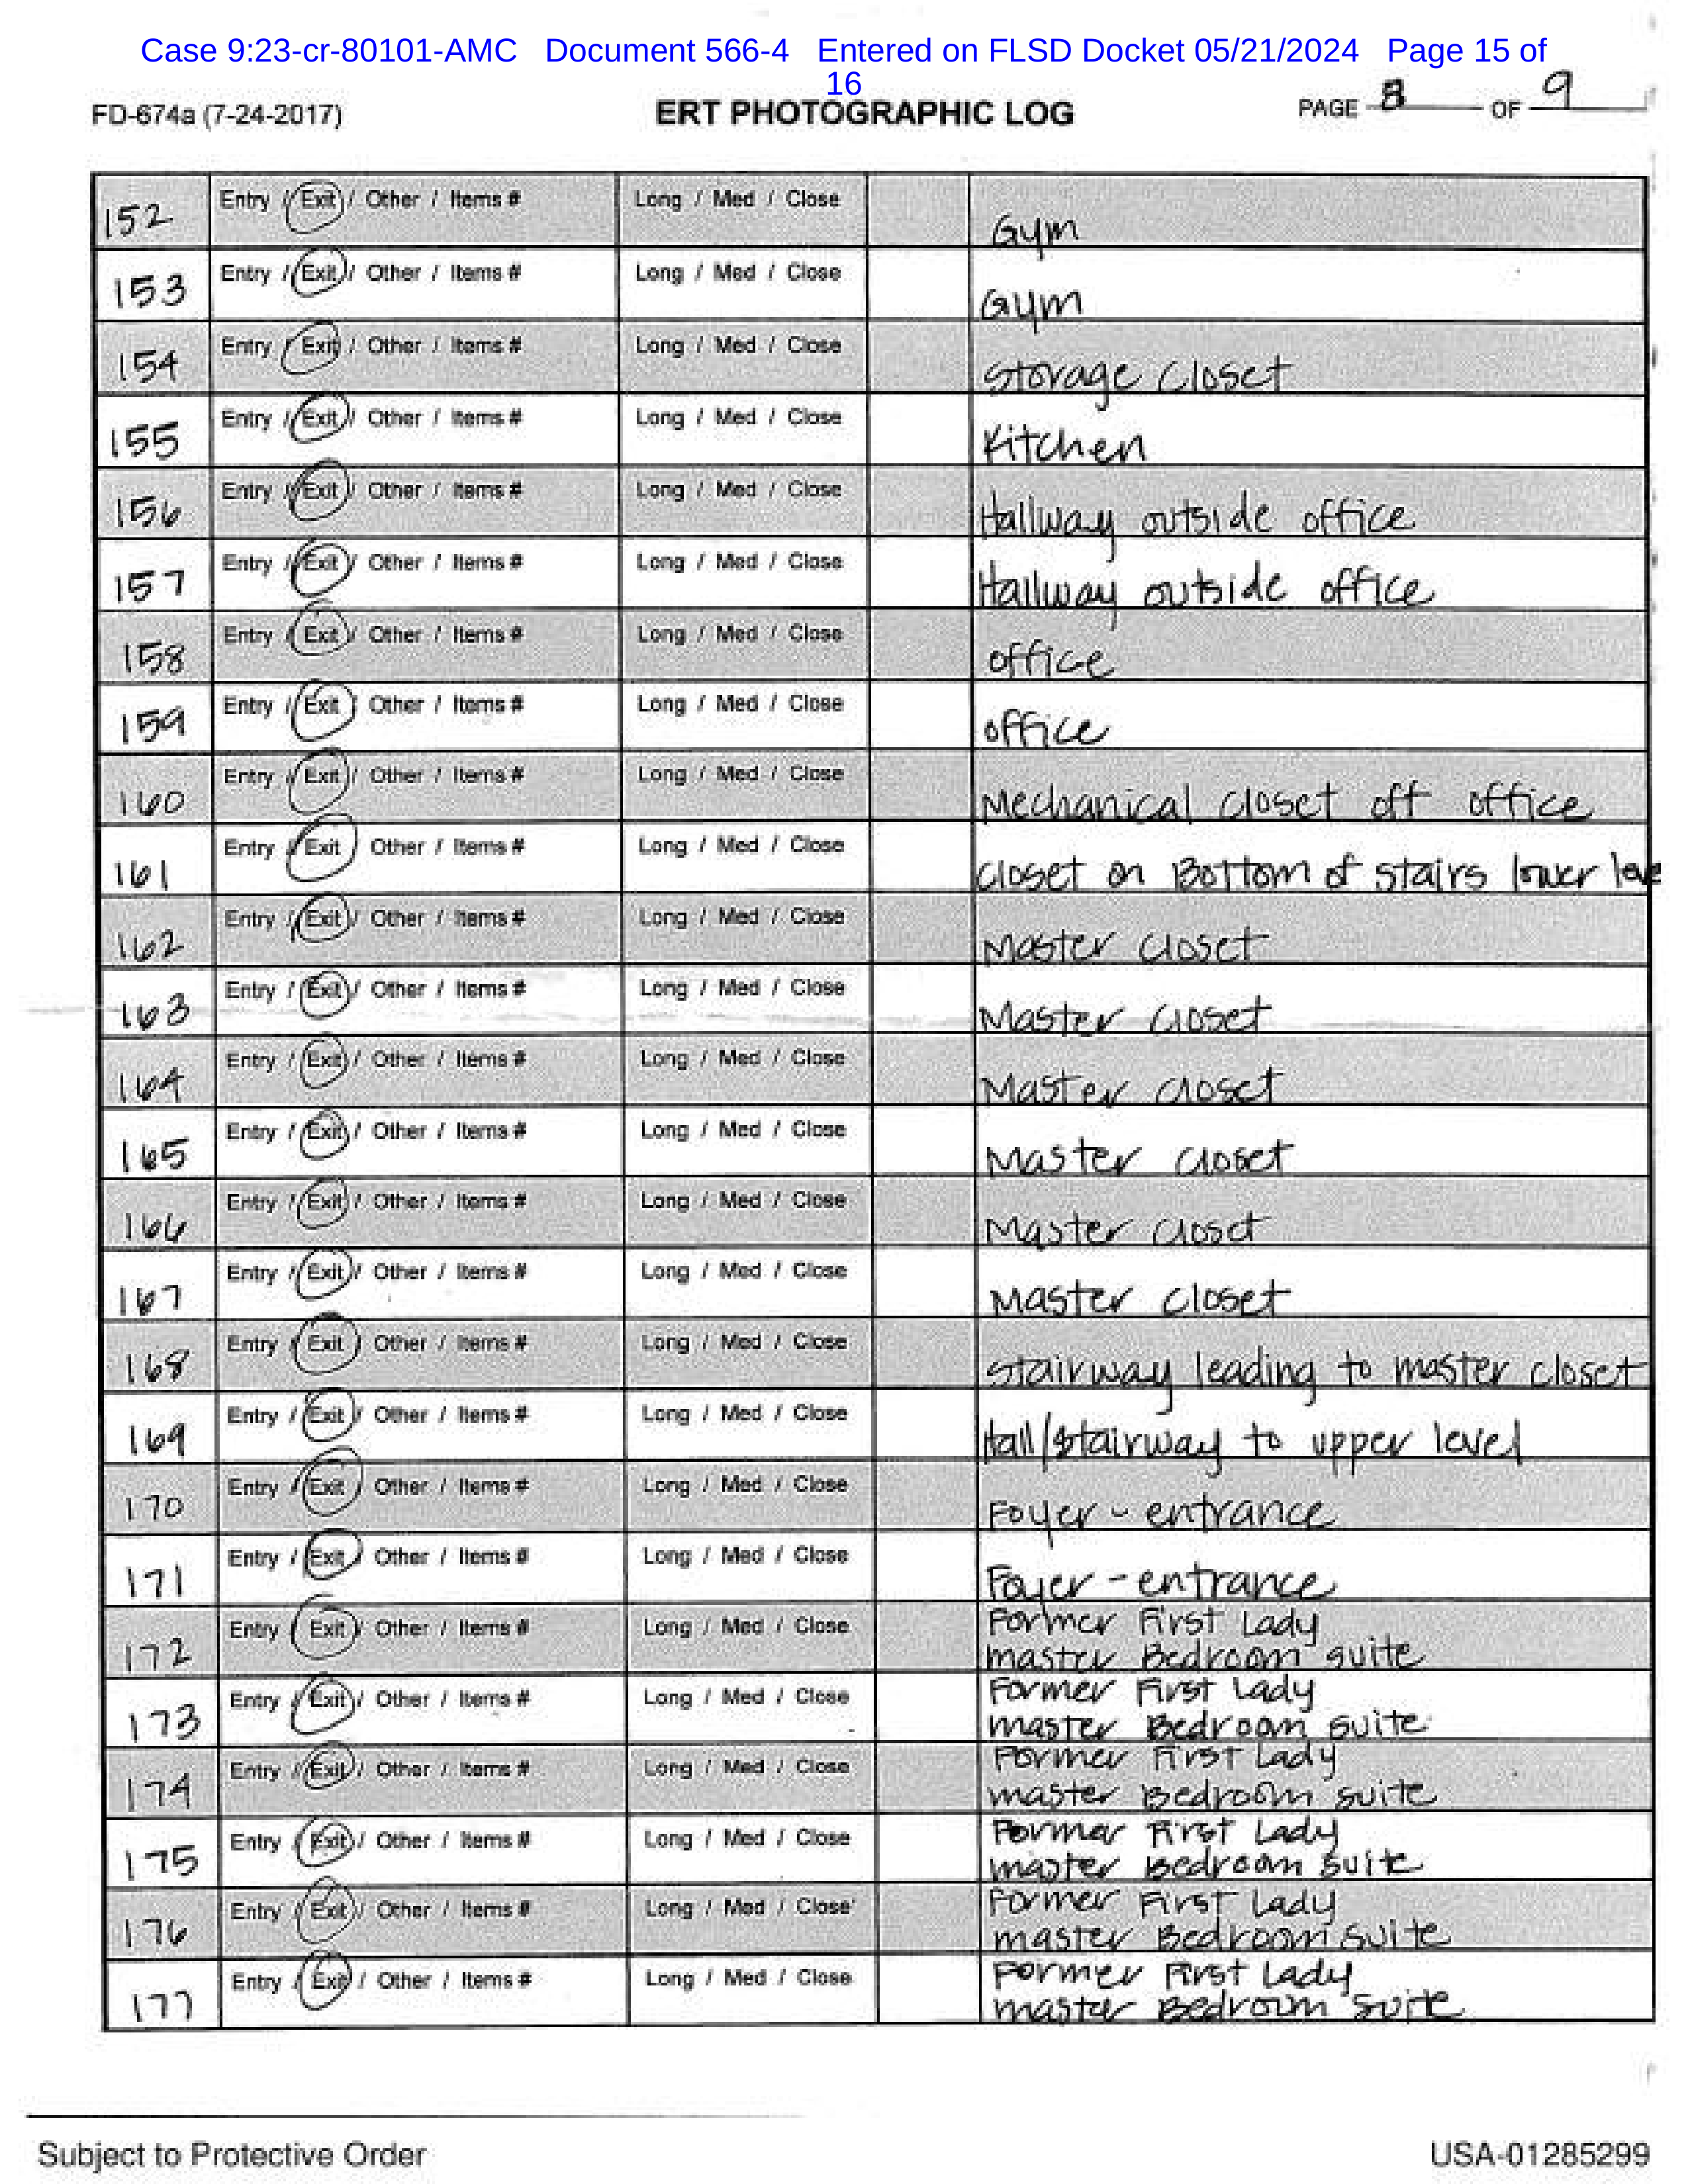 Case 9:23-cr-80101-AMC Document 566-4 Entered on FLSD Docket 05/21/2024 Page 15 of
16
FD-674a (7-24-2017) ERT PHOTOGRAPHIC LOG PAGE 8 OF 9
152 Entry / Exit / Other / Items # Long / Med / Close Gym
153 Entry / Exit / Other / Items # Long / Med / Close Gym
154 Entry / Exit / Other / Items # Long / Med / Close Storage Closet
155 Entry / Exit / Other / Items # Long / Med / Close Kitchen
156 Entry / Exit / Other / Items # Long / Med / Close Hallway outside office
157 Entry / Exit / Other / Items # Long / Med / Close Hallway outside office
158 Entry / Exit / Other / Items # Long / Med / Close office
159 Entry / Exit / Other / Items # Long / Med / Close office
160 Entry / Exit / Other / Items # Long / Med / Close Mechanical closet off office
161 Entry / Exit / Other / Items # Long / Med / Close closet on Bottom of stairs lower leve
162 Entry / Exit / Other / Items # Long / Med / Close Master closet
163 Entry / Exit / Other / Items # Long / Med / Close Master closet
164 Entry / Exit / Other / Items # Long / Med / Close Master closet
165 Entry / Exit / Other / Items # Long / Med / Close Master closet
166 Entry / Exit / Other / Items # Long / Med / Close Master closet
167 Entry / Exit / Other / Items # Long / Med / Close Master closet
168 Entry / Exit / Other / Items # Long / Med / Close stairway leading to master closet
169 Entry / Exit / Other / Items # Long / Med / Close Hall/stairway to upper level
170 Entry / Exit / Other / Items # Long / Med / Close Foyer - entrance
171 Entry / Exit / Other / Items # Long / Med / Close Foyer - entrance
172 Entry / Exit / Other / Items # Long / Med / Close Former First Lady
master Bedroom suite
173 Entry / Exit / Other / Items # Long / Med / Close Former First Lady
master Bedroom suite
174 Entry / Exit / Other / Items # Long / Med / Close Former First Lady
master Bedroom suite
175 Entry / Exit / Other / Items # Long / Med / Close Former First Lady
master Bedroom suite
176 Entry / Exit / Other / Items # Long / Med / Close Former First Lady
master Bedroom suite
177 Entry / Exit / Other / Items # Long / Med / Close Former First Lady
master Bedroom suite
Subject to Protective Order USA-01285299